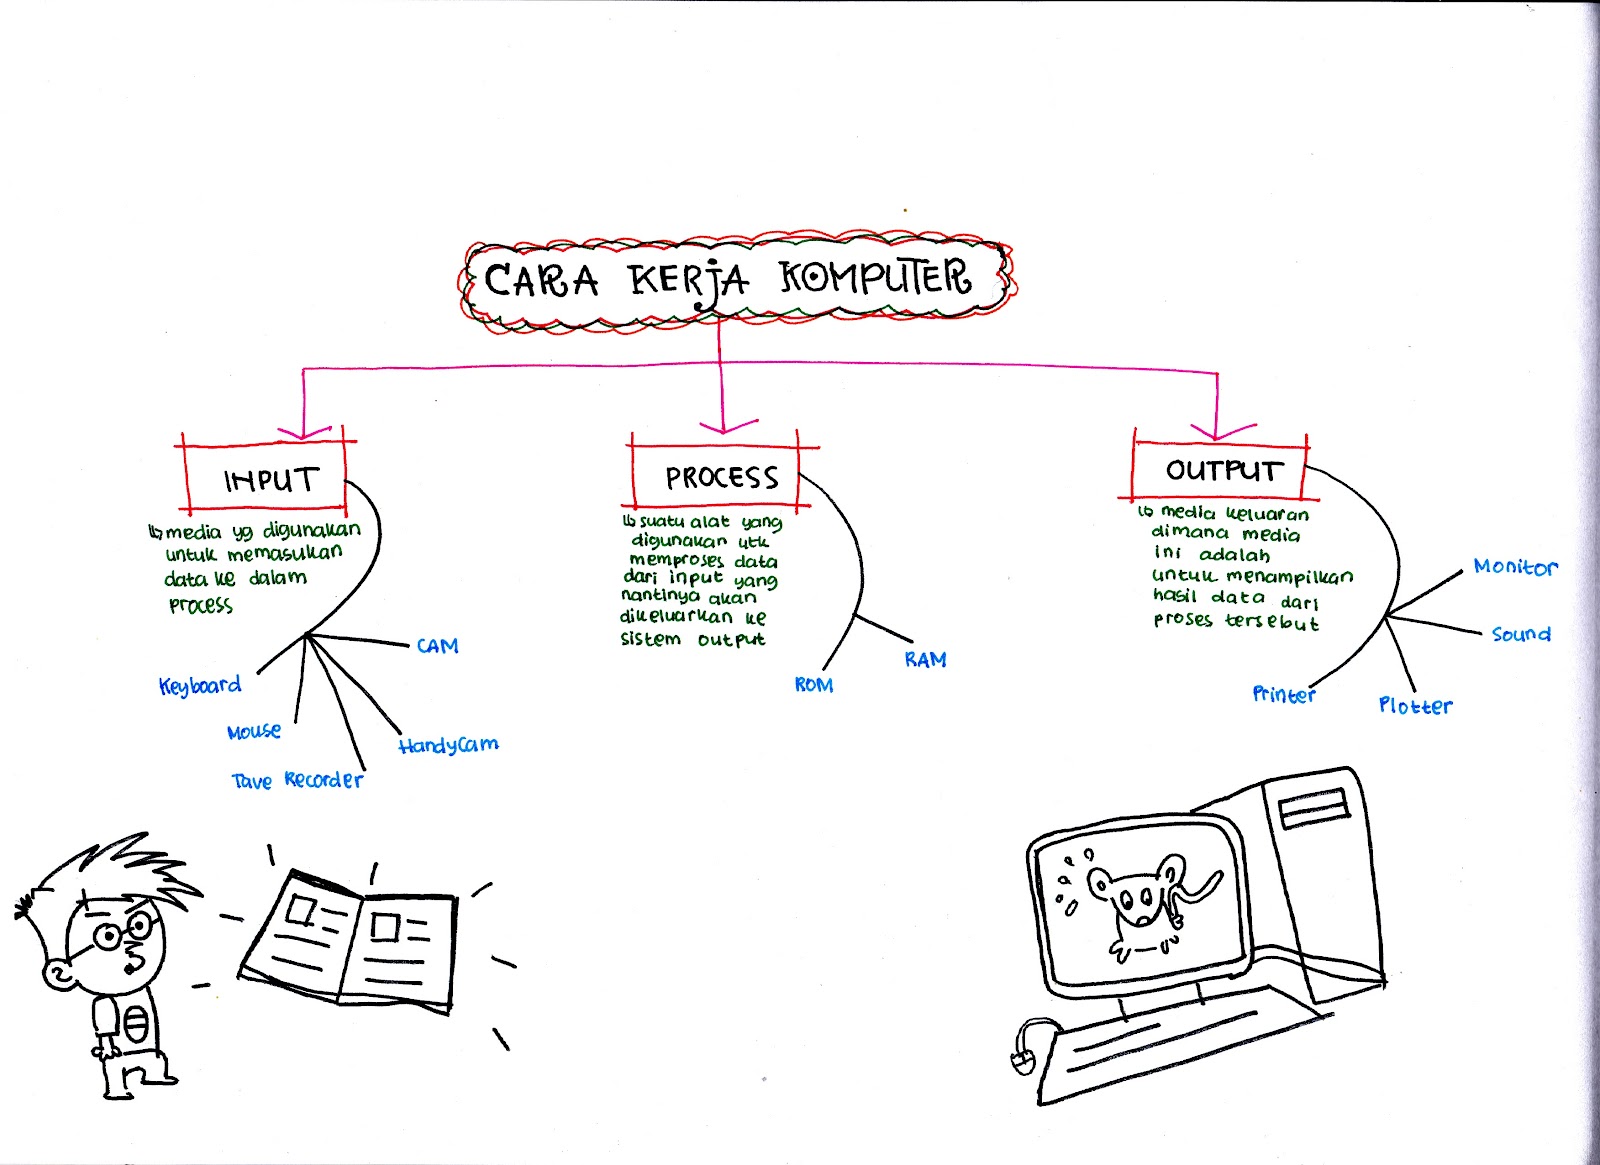 CARA KERJA KOMPUTER
INPUT
media yg digunakan
untuk memasukan
data ke dalam
process
Keyboard
Mouse
Tave Recorder
HandyCam
CAM
PROCESS
suatu alat yang
digunakan utk
memproses data
dari input yang
nantinya akan
dikeluarkan ke
sistem output
ROM
RAM
OUTPUT
media keluaran
dimana media
ini adalah
untuk menampilkan
hasil data dari
proses tersebut
Monitor
Sound
Plotter
Printer